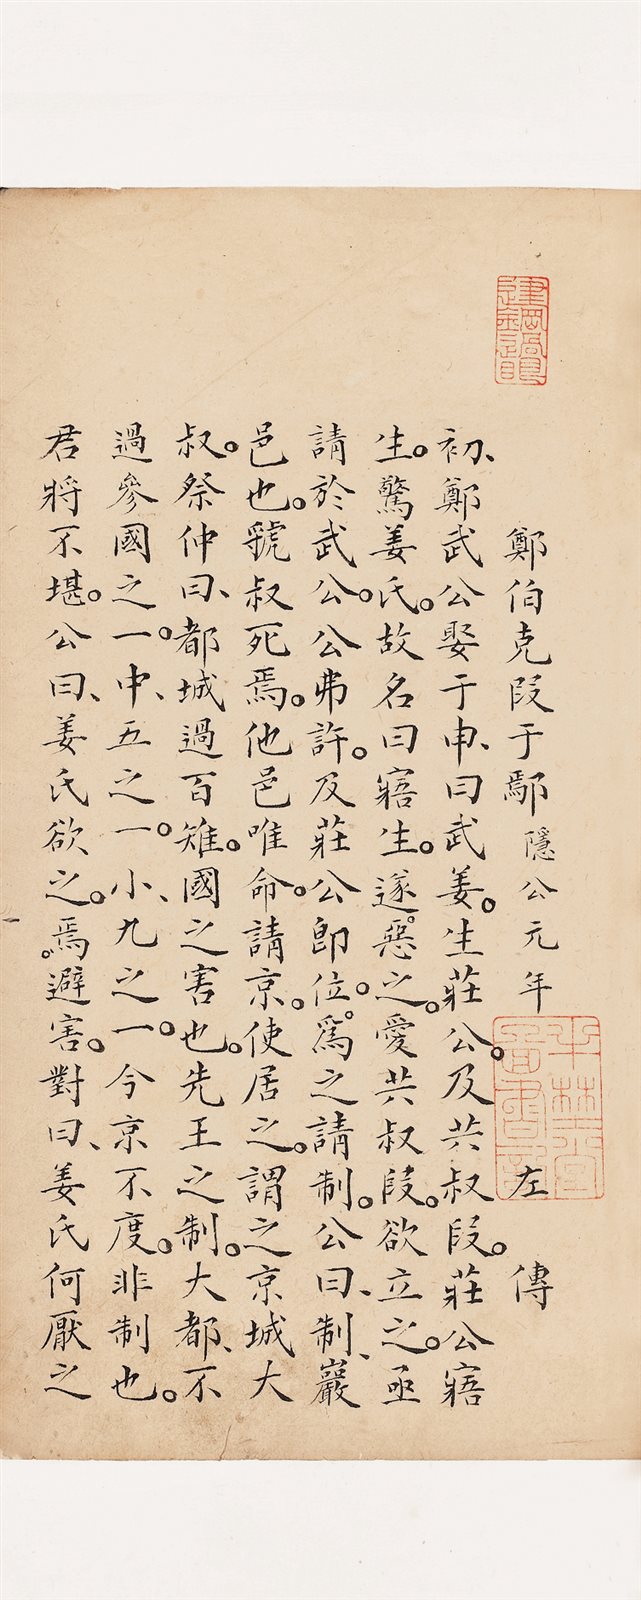 鄭伯克段于鄢 隱公元年 左傳
初、鄭武公娶于申、曰武姜。生莊公。及共叔段。莊公寤
生。驚姜氏。故名曰寤生。遂惡之。愛共叔段。欲立之。亟
請於武公。公弗許。及莊公即位。爲之請制。公曰、制、巖
邑也。虢叔死焉。他邑唯命。請京。使居之。謂之京城大
叔。祭仲曰、都城過百雉。國之害也。先王之制。大都、不
過參國之一。中、五之一。小、九之一。今京不度。非制也。
君將不堪。公曰、姜氏欲之。焉避害。對曰、姜氏何厭之